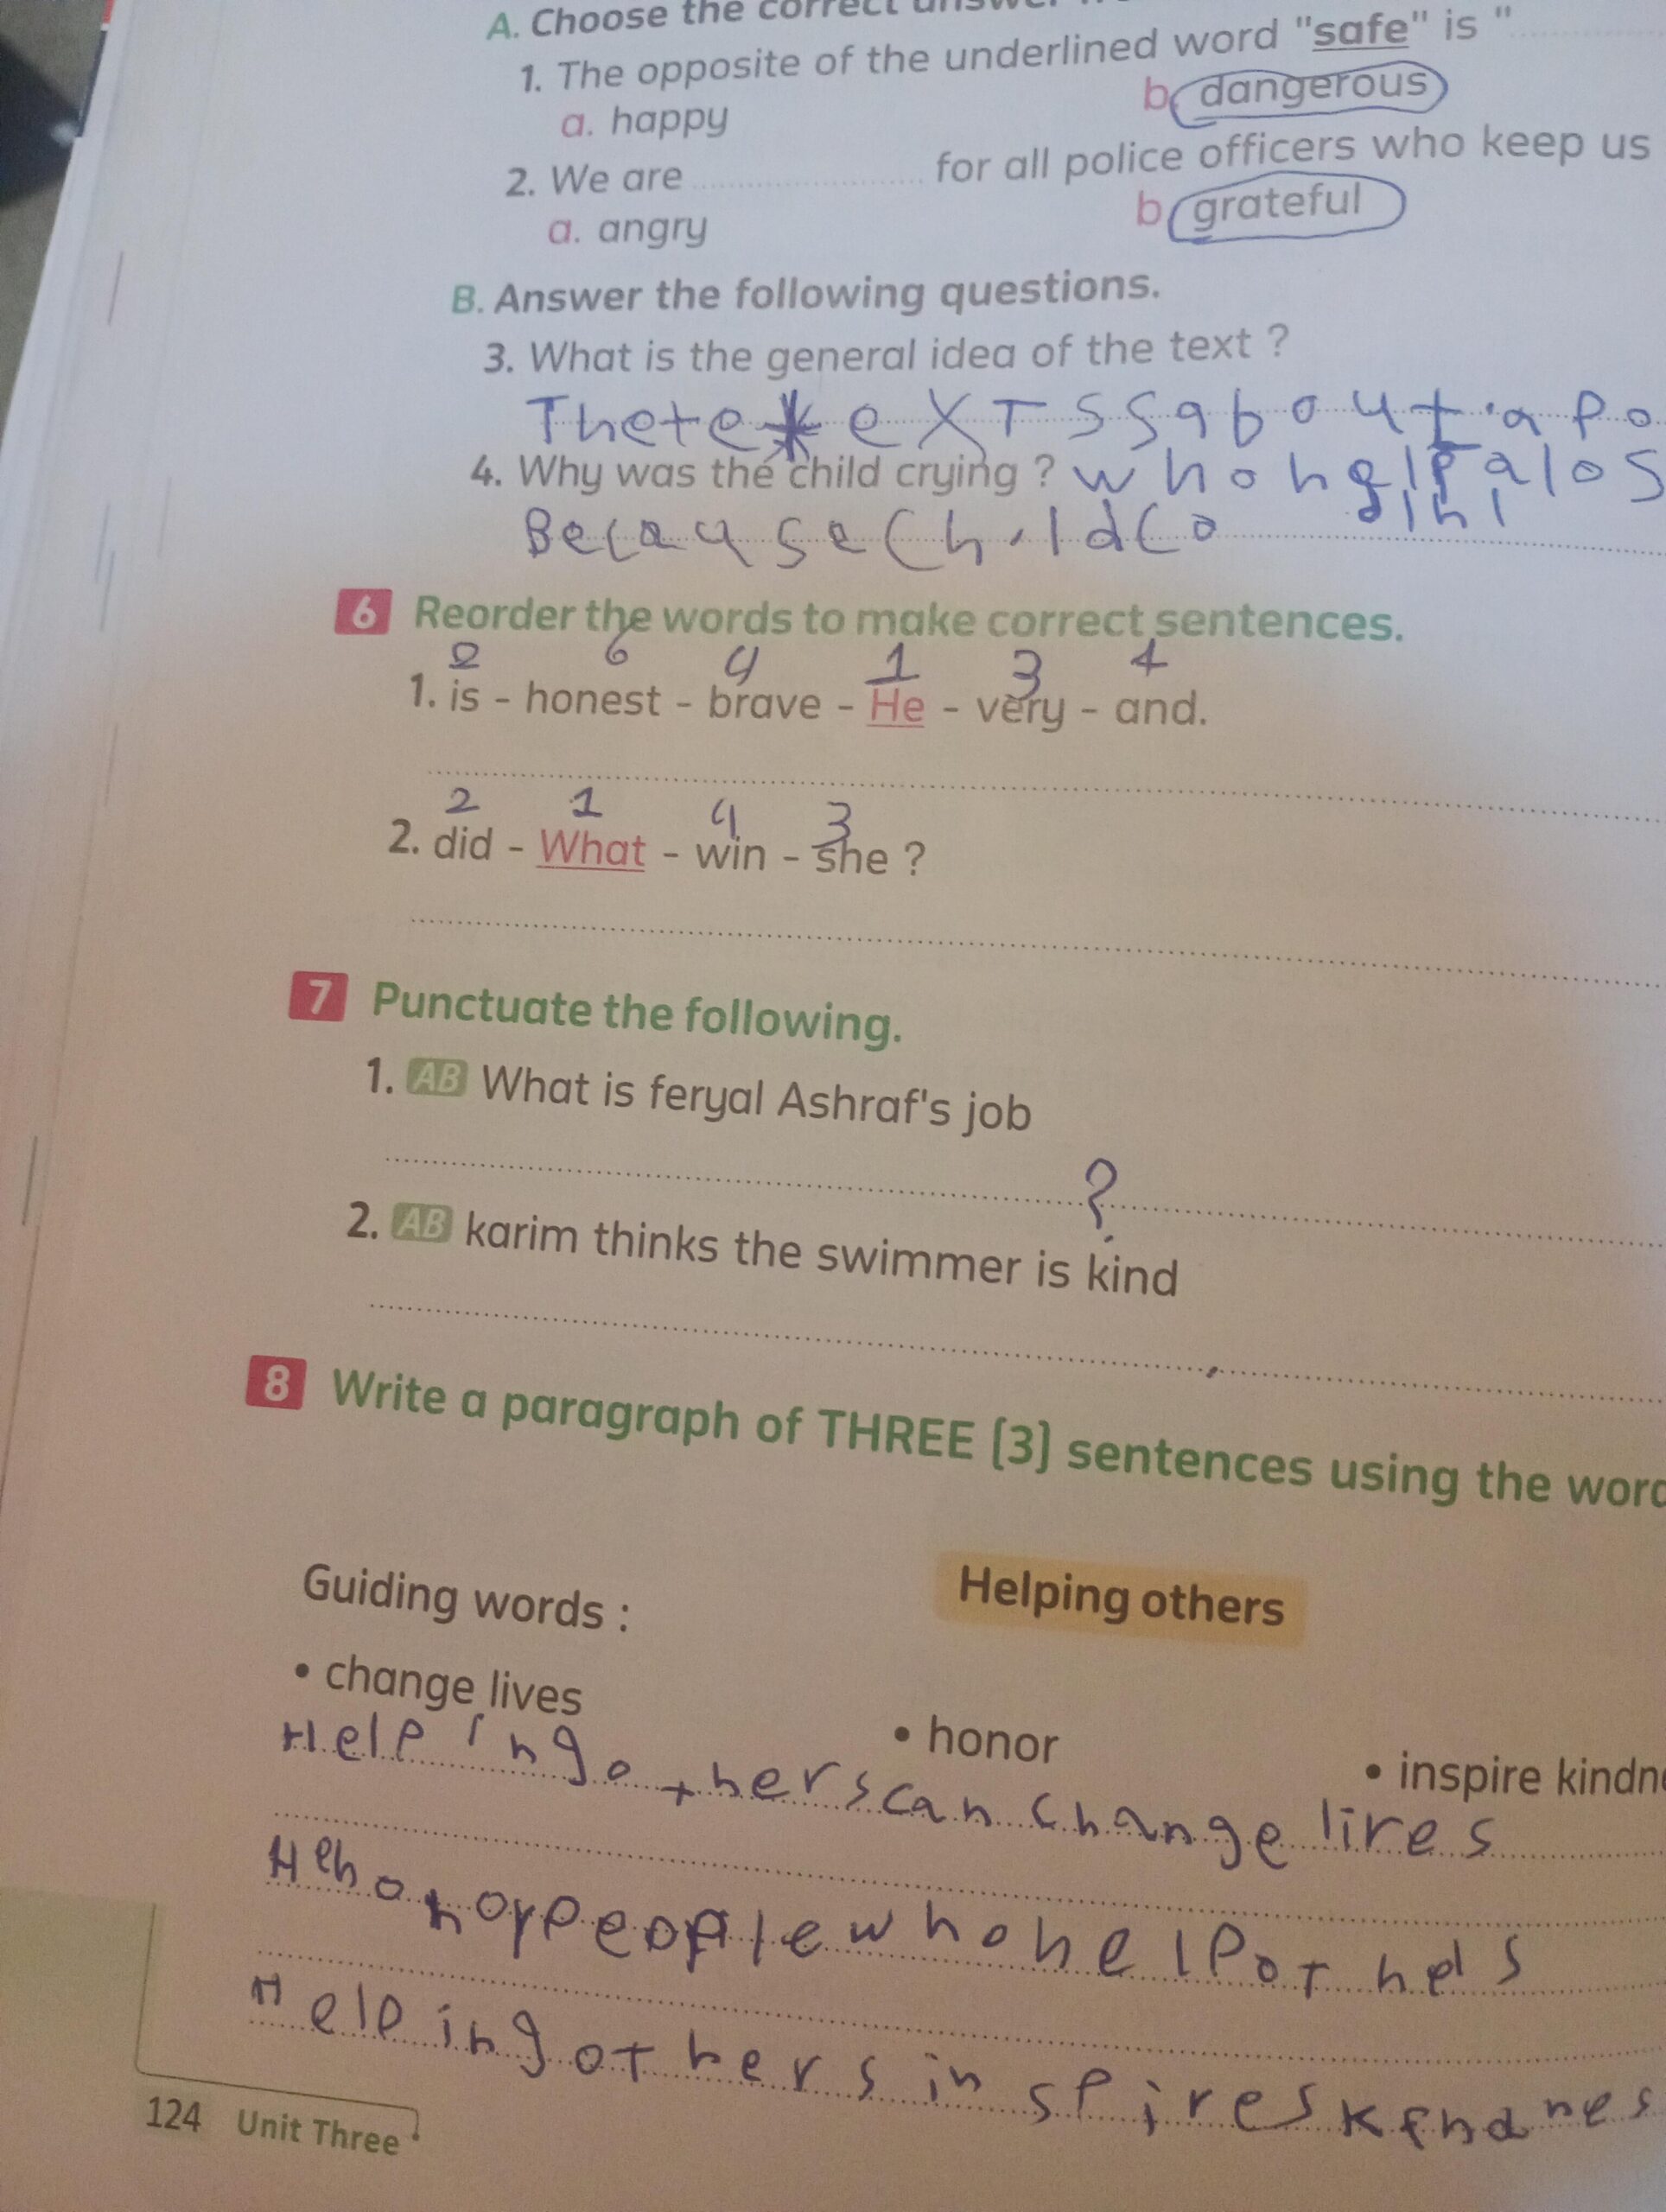 A. Choose the correct answer
1. The opposite of the underlined word "safe" is "
a. happy b. dangerous
2. We are for all police officers who keep us
a. angry b. grateful
B. Answer the following questions.
3. What is the general idea of the text ?
about a po
4. Why was the child crying ? who help a los
Because Child Co
6 Reorder the words to make correct sentences.
2 6 4 1 3
1. is - honest - brave - He - very - and.
2 1 4 3
2. did - What - win - she ?
7 Punctuate the following.
1. AB What is feryal Ashraf's job
?
2. AB karim thinks the swimmer is kind
.
8 Write a paragraph of THREE (3) sentences using the
Helping others
Guiding words :
• change lives • honor • inspire
Helping others can change lires
honor people who help
Helping others inspires
124 Unit Three